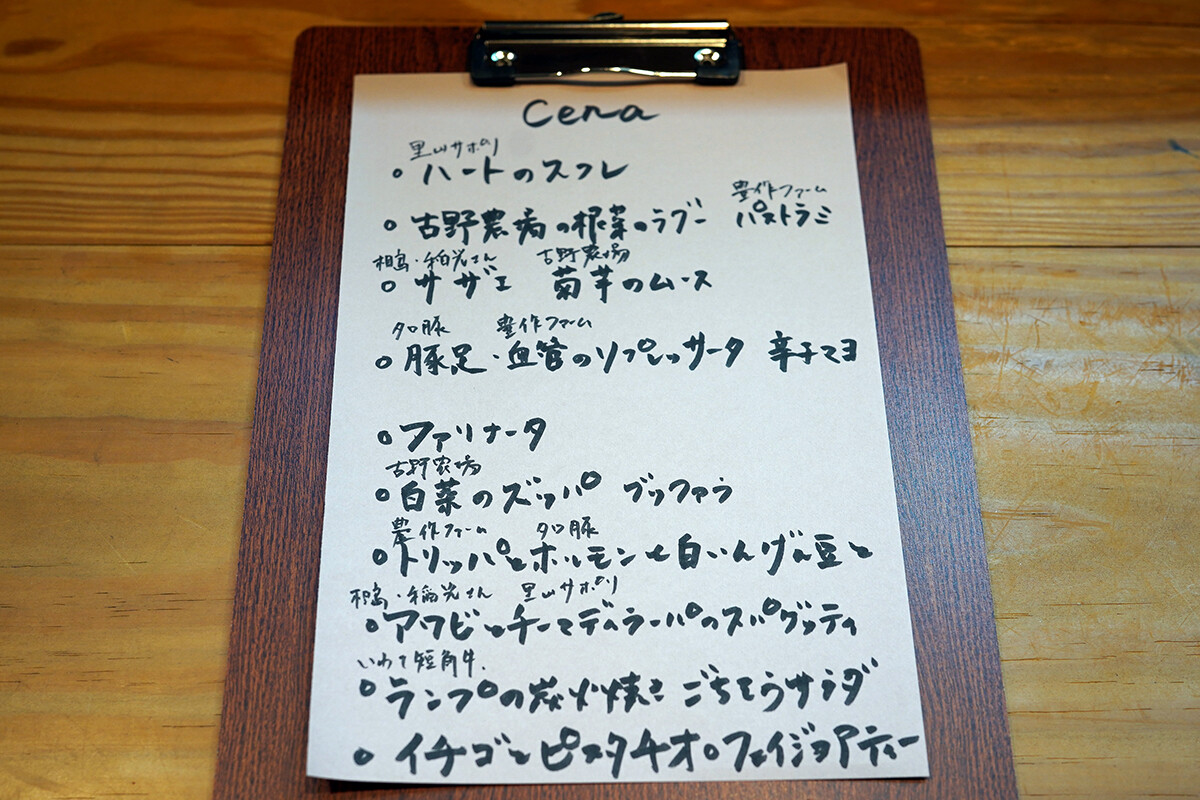 Cena
里山サポリ
・ハートのスフレ
豊作ファーム
・古野農場の根菜のラグー パストラミ
相島・稲光さん 古野農場
・サザエ 菊芋のムース
タロ豚 豊作ファーム
・豚足・血管のソプレッサータ 辛子マヨ
・ファリナータ
古野農場
・白菜のズッパ ブッファラ
豊作ファーム タロ豚
・トリッパとホルモンと白いんげん豆と
相島・稲光さん 里山サポリ
・アワビとチーマディラーパのスパゲッティ
いわて短角牛.
・ランプの炭火焼き ごちそうサラダ
・イチゴとピスタチオ。フェイジョアティー